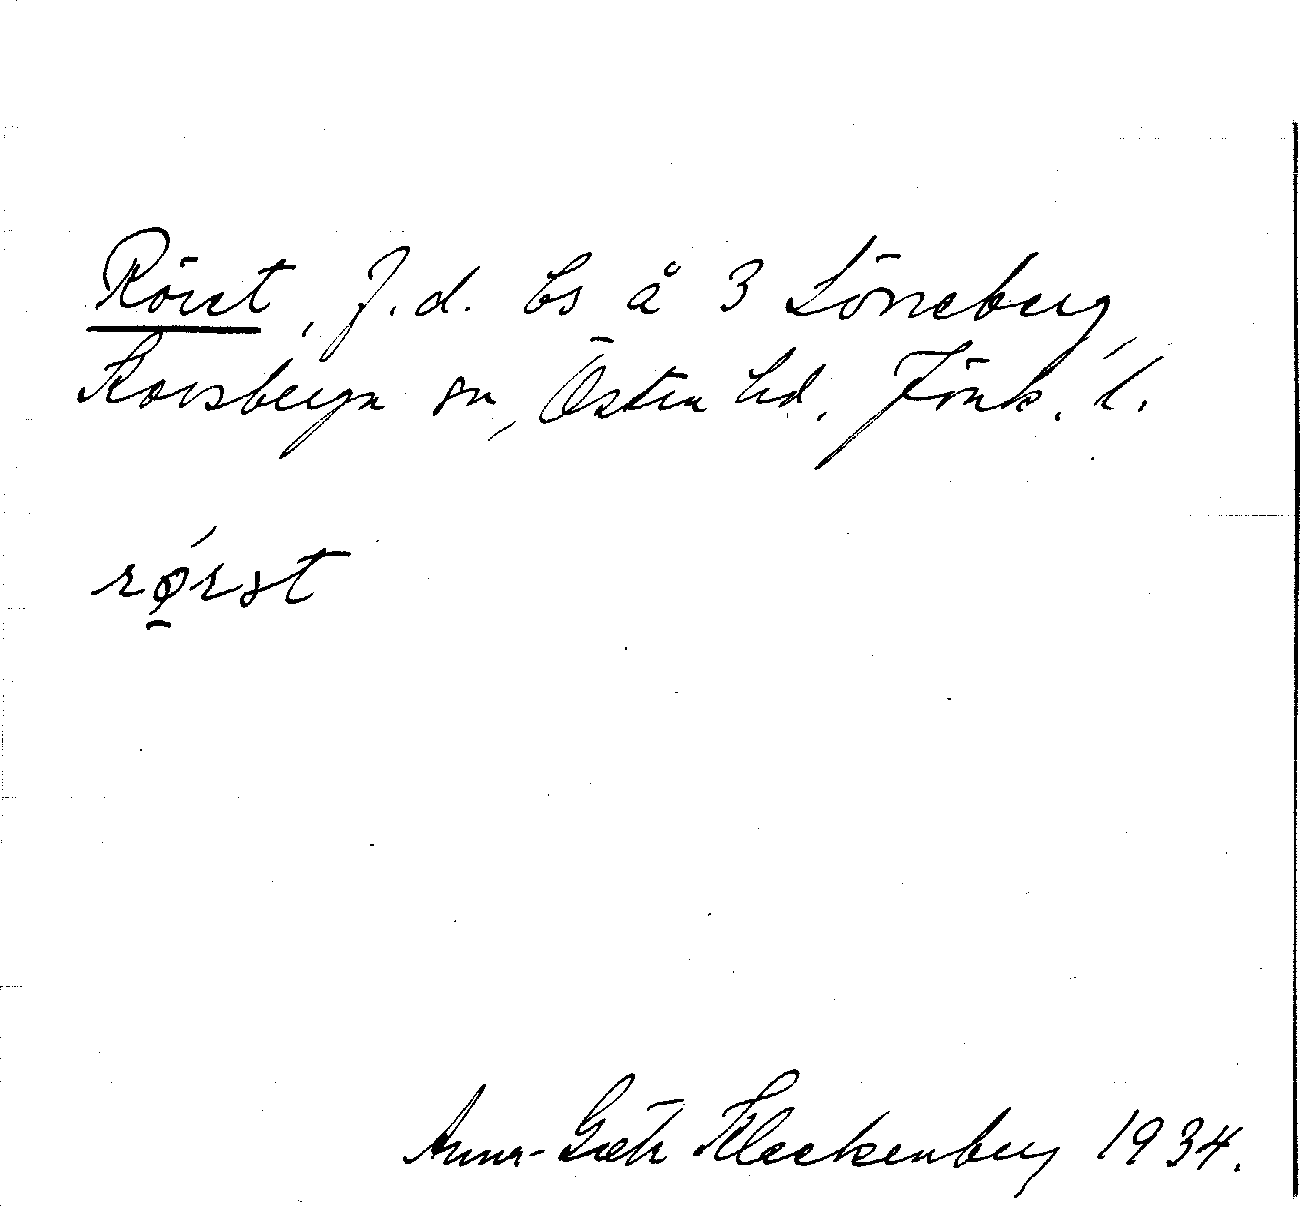 Rörst, f.d. bs å 3 Lönneberg,
Korsberga sn, Östra hd. Jönk. l.
rǿ̱rst
Anna-Greta Kleckenberg 1934.